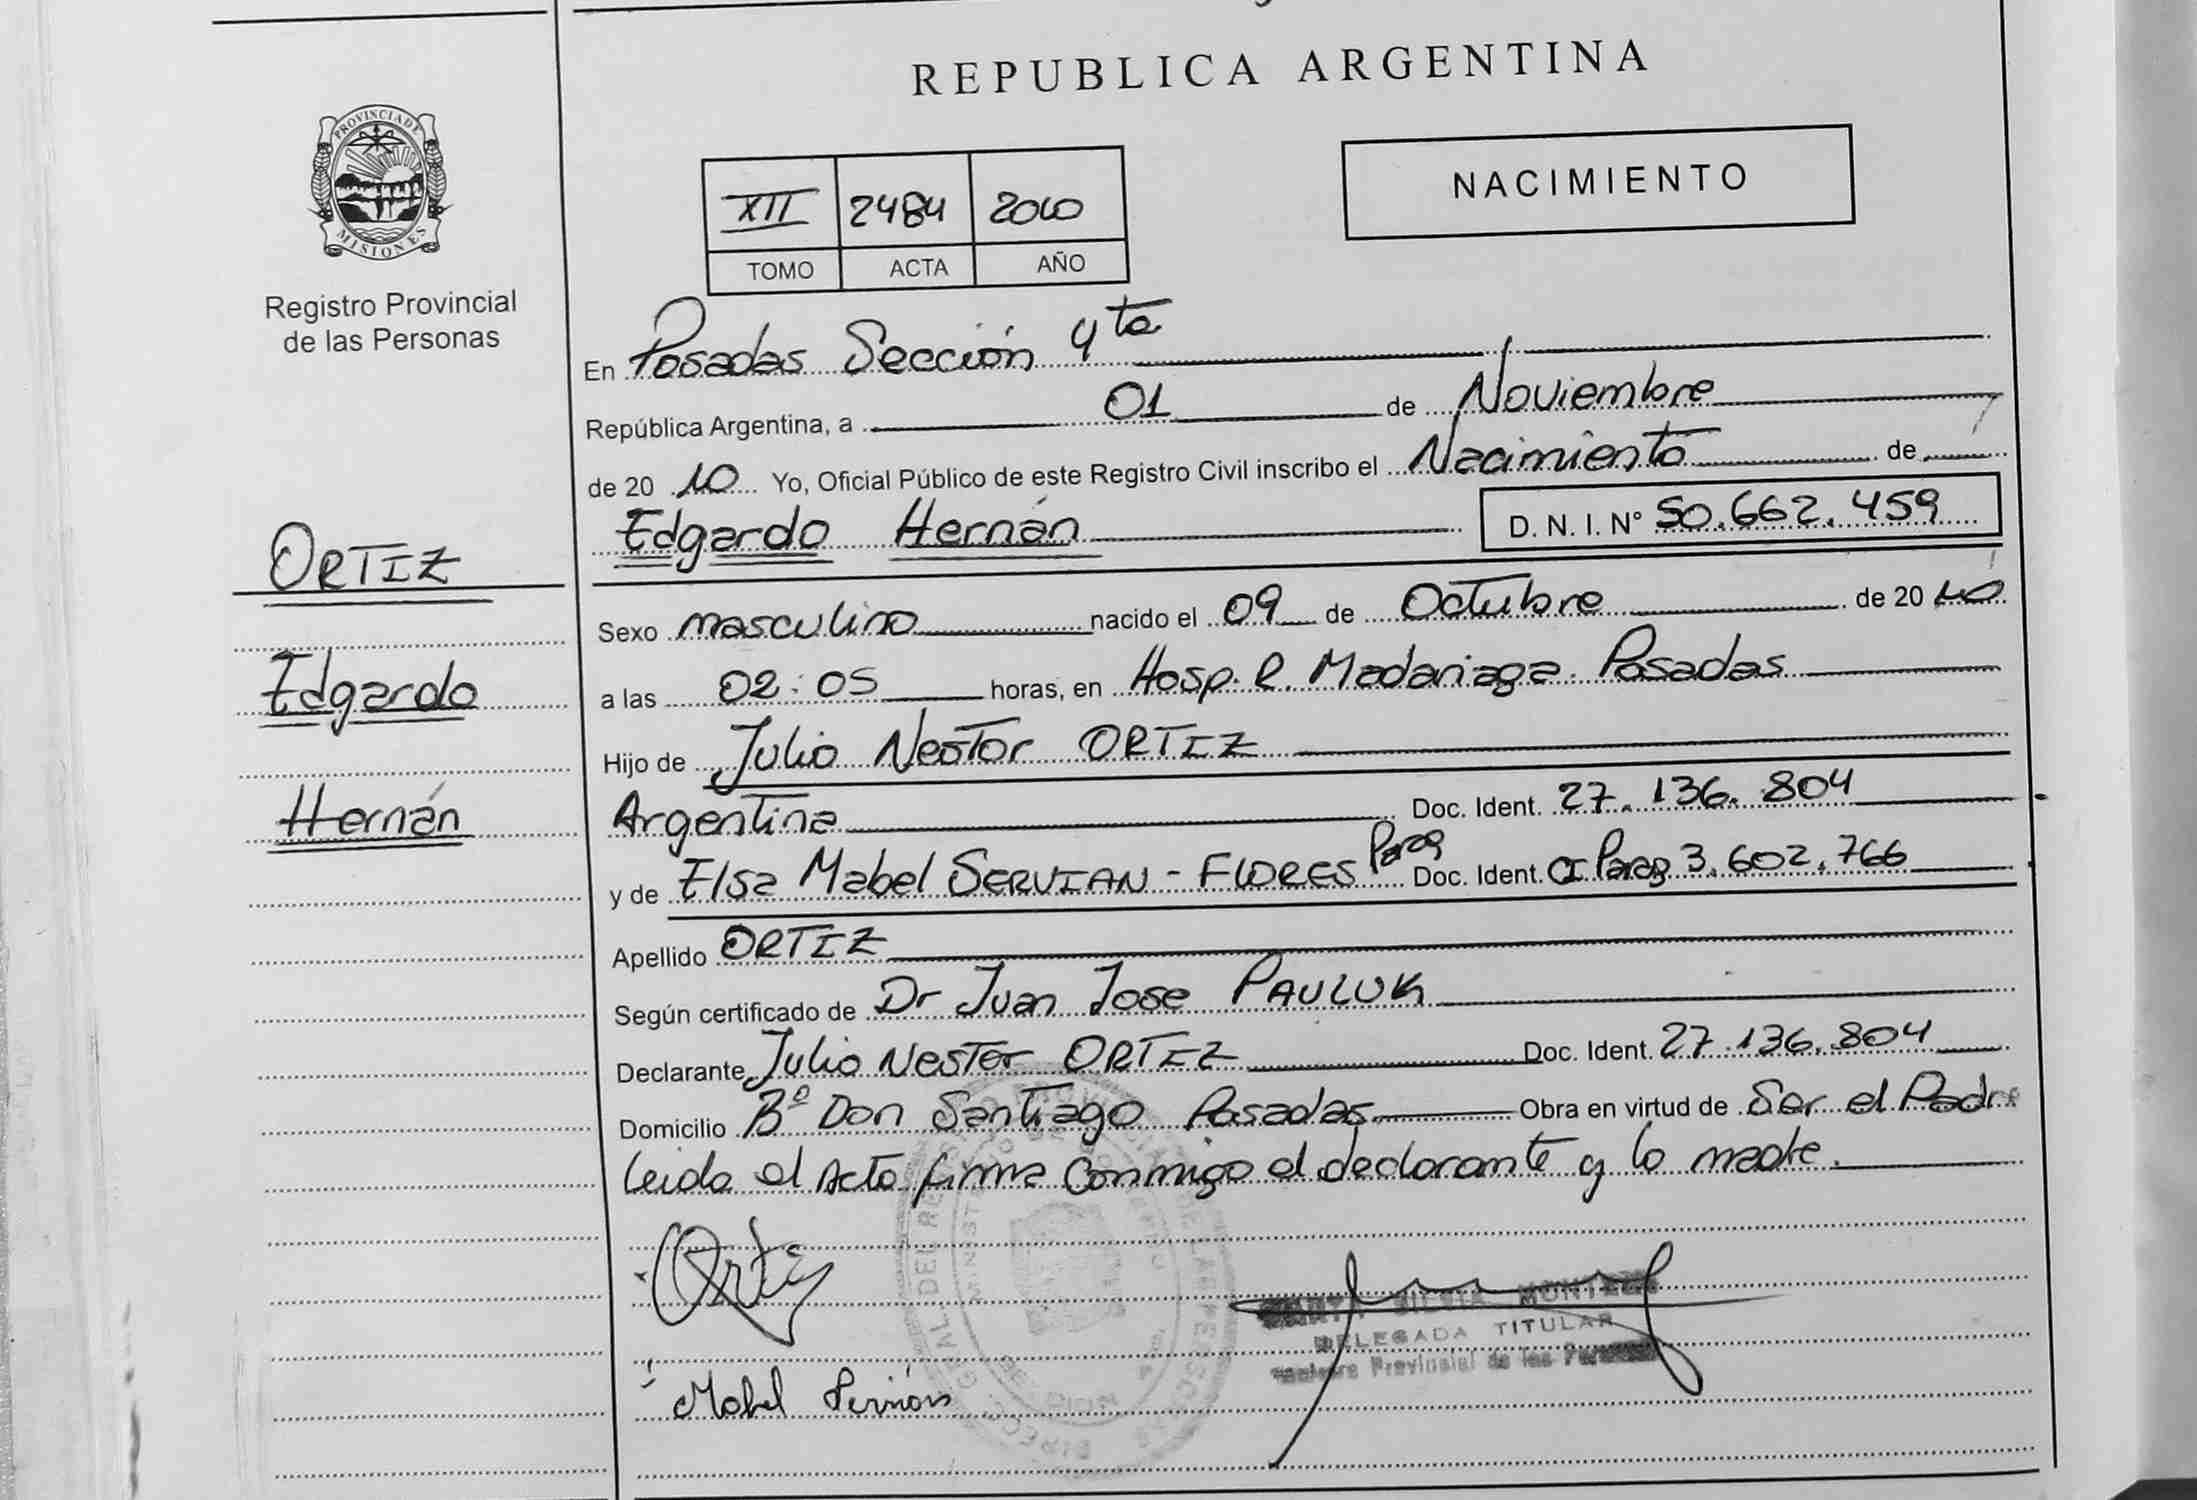 REPUBLICA ARGENTINA
PROVINCIA DE
MISIONES
Registro Provincial
de las Personas
NACIMIENTO
XII 2484 2010
TOMO ACTA AÑO
En Posadas Sección 4ta
República Argentina, a 01 de Noviembre
de 20 10 Yo, Oficial Público de este Registro Civil inscribo el Nacimiento de
Edgardo Hernán D. N. I. N° 50.662.459
ORTIZ
Edgardo
Hernán
Sexo masculino nacido el 09 de Octubre de 20 10
a las 02:05 horas, en Hosp. R. Madariaga. Posadas
Hijo de Julio Nestor ORTIZ
Argentina Doc. Ident. 27.136.804
y de Elsa Mabel SERVIAN - FLORES Parag Doc. Ident. CI Parag 3.602.766
Apellido ORTIZ
Según certificado de Dr Juan Jose PAULUK
Declarante Julio Nestor ORTIZ Doc. Ident. 27.136.804
Domicilio Bº Don Santiago Posadas Obra en virtud de Ser el Padre
Leida el Acta firma Conmigo el declarante y la madre.
Ortiz
SILVIA
DELEGADA TITULAR
Provincial de las
Mabel